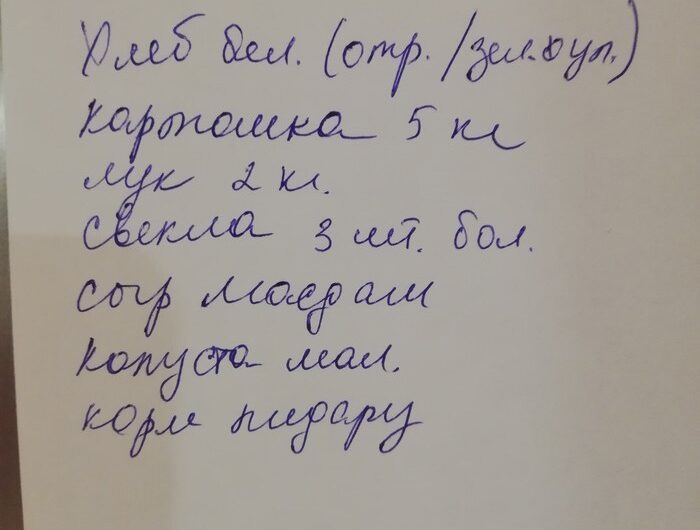 Хлеб бел. (отр./зел.уп.)
картошка 5 кг
лук 2 кг.
свекла 3 шт. бол.
сыр Маасдам
капуста мал.
корм пидару